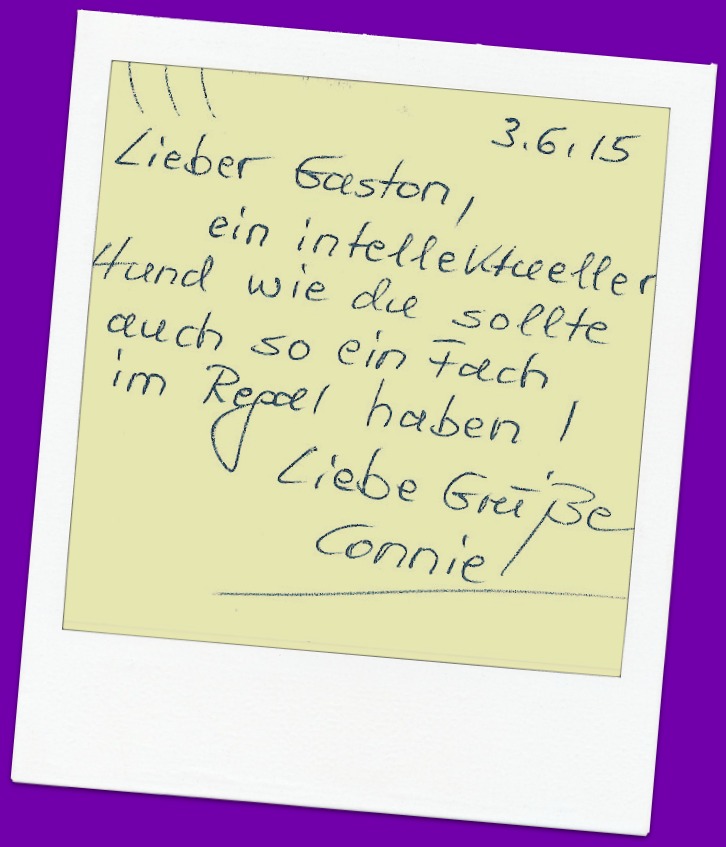 3.6.15
Lieber Gaston,
ein intellektueller
Hund wie du sollte
auch so ein Fach
im Regal haben!
Liebe Grüße
Connie